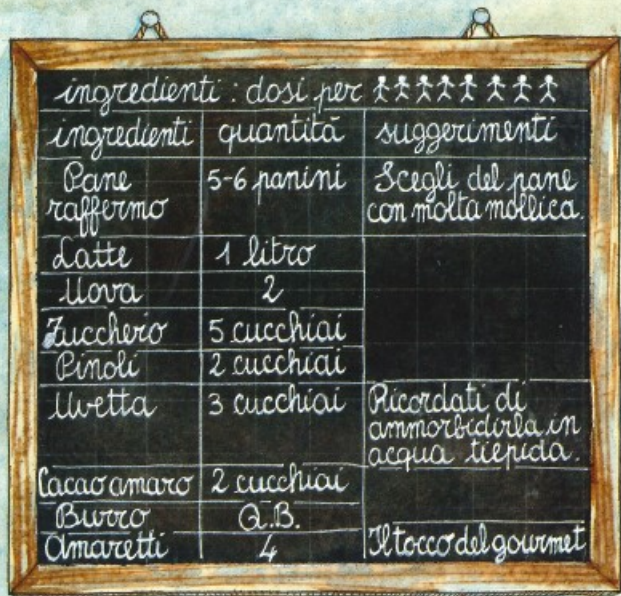 ingredienti: dosi per
ingredienti quantità suggerimenti
Pane raffermo 5-6 panini Scegli del pane con molta mollica.
Latte 1 litro
Uova 2
Zucchero 5 cucchiai
Pinoli 2 cucchiai
Uvetta 3 cucchiai Ricordati di ammorbidirla in acqua tiepida.
Cacao amaro 2 cucchiai
Burro Q.B.
Amaretti 4 Il tocco del gourmet